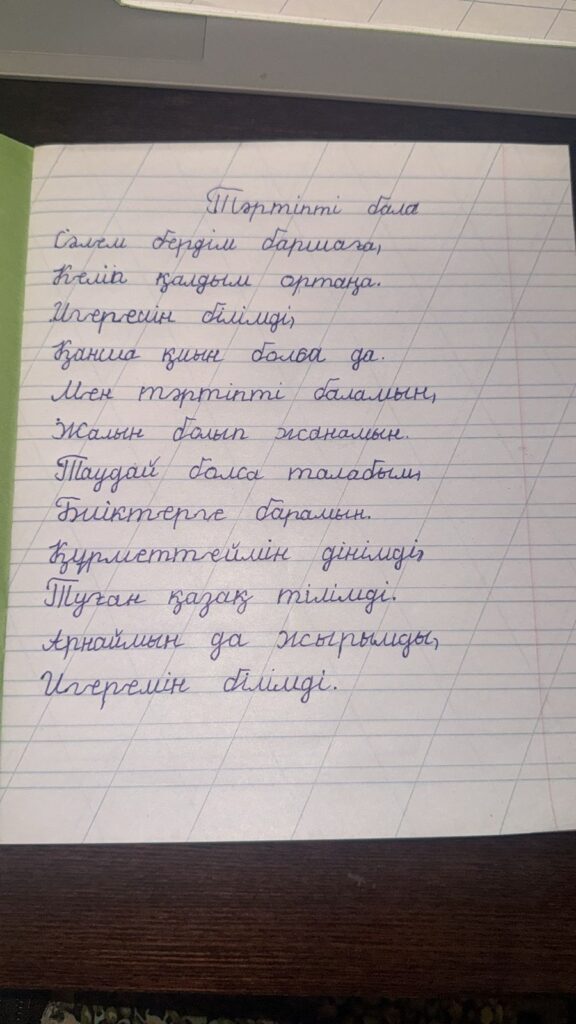 Тәртіпті бала
Сәлем бердім баршаға,
Келіп қалдым ортаңа.
Игеремін білімді,
Қанша қиын болса да.
Мен тәртіпті баламын,
Жалын болып жанамын.
Таудай болса талабым,
Биіктерге барамын.
Құрметтеймін дінімді,
Туған қазақ тілімді.
Арнаймын да жырымды,
Игеремін білімді.